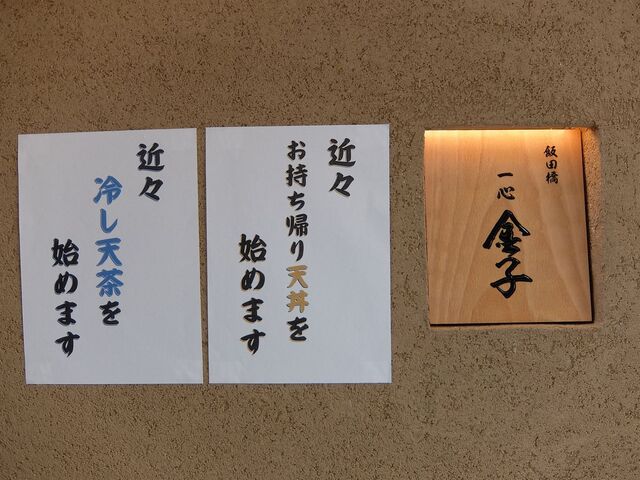 飯田橋
一心
金子
近々
お持ち帰り天丼を
始めます
近々
冷し天茶を
始めます